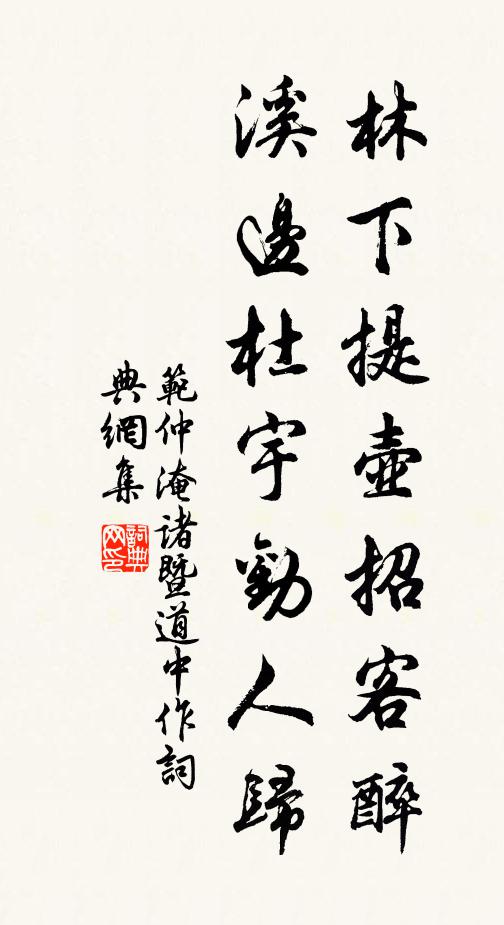 林下提壺招客醉
溪邊杜宇勸人歸
範仲淹諸暨道中作詞
典網集
詞典
网印